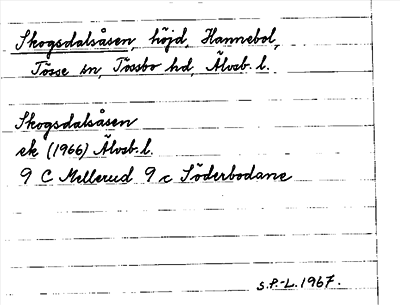 Skogsdalsåsen, höjd, Hannebol,
Tösse sn, Tössbo hd, Älvsb. l.
Skogsdalsåsen
ek (1966) Älvsb. l.
9 C Mellerud 9 c Söderbodane
S.P.-L. 1967.